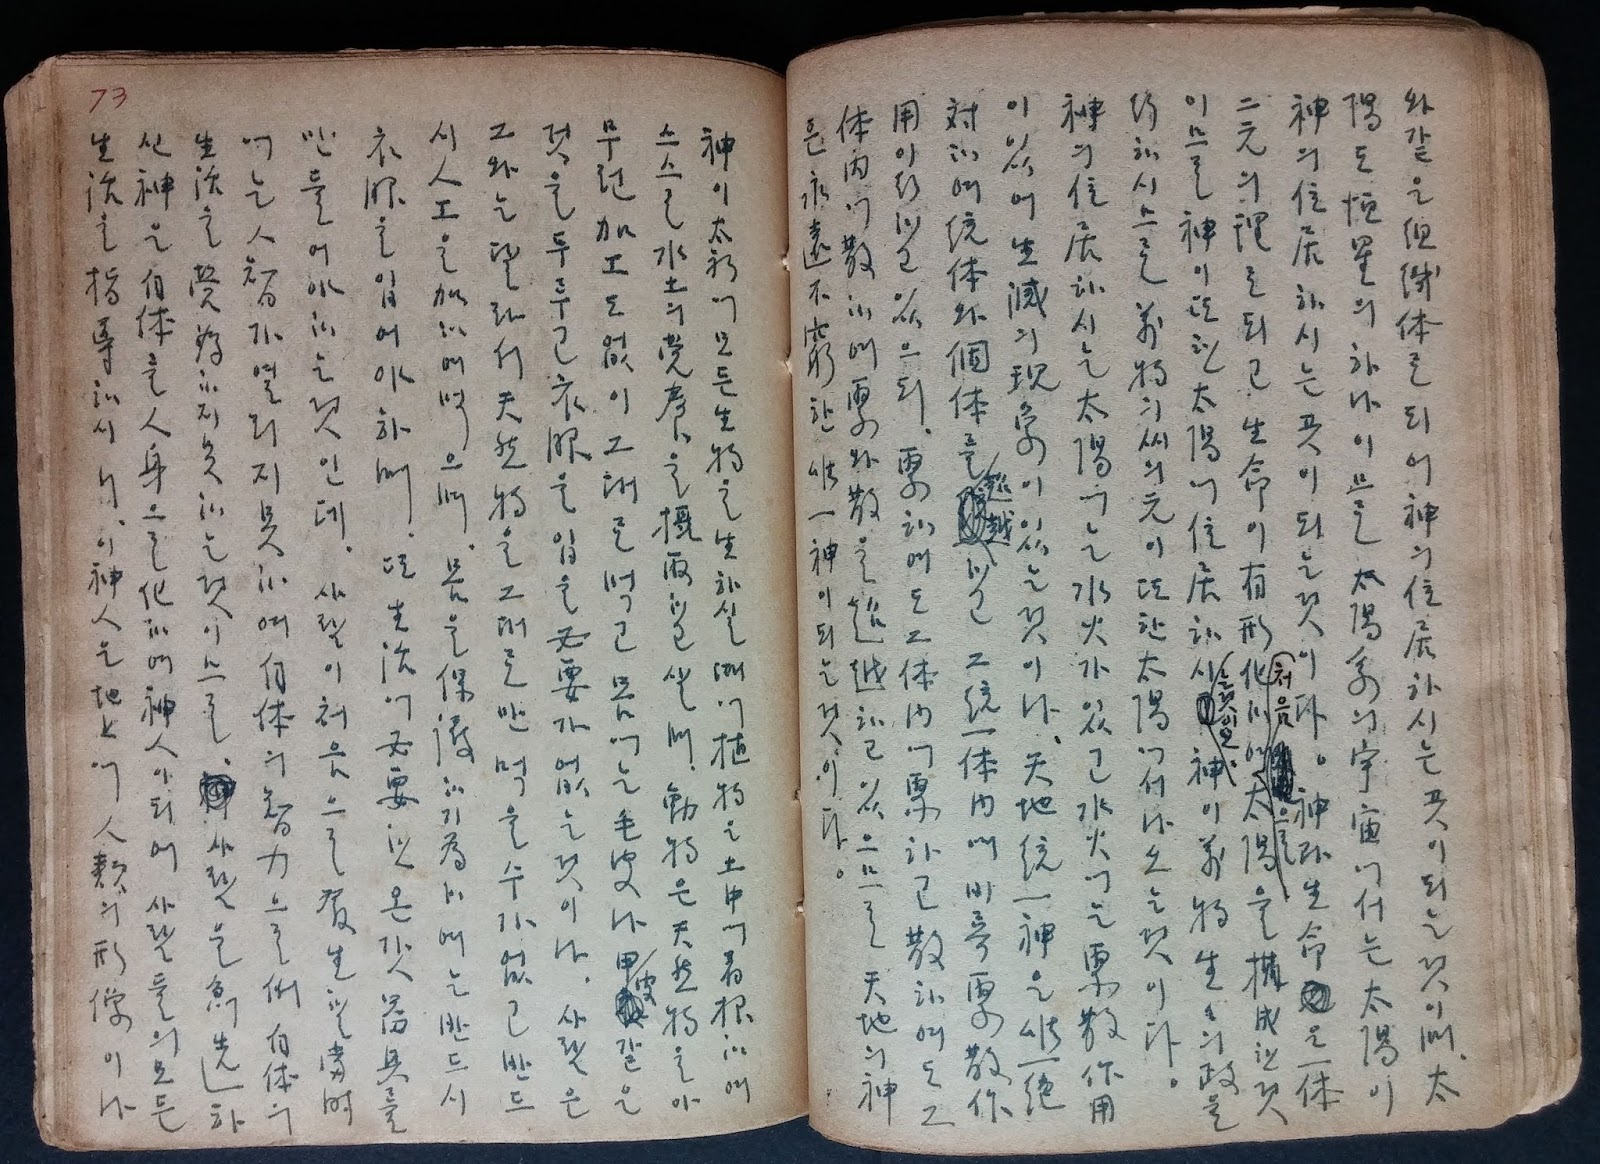 와 같은 組織体로 되어 神의 住居하시는 곳이 되는 것이며, 太
陽도 恒星의 하나이므로 太陽系의 宇宙에서는 太陽이
神의 住居하시는 곳이 되는 것이다。神과 生命은 一体
二元의 理로 되고 生命이 有形化하여 처음으로 太陽을 構成한 것
이므로 神이 또한 太陽에 住居하시는 것이오. 神이 萬物 生生의 政을
行하시므로 萬物의 씨의 元이 또한 太陽에서 나오는 것이다。
神의 住居하시는 太陽에는 水火가 있고 水火에는 聚散作用
이 있어 生滅의 現象이 있는 것이나, 天地統一神은 唯一絶
対하여 統体와 個体를 超越하고 그 統一体内에 비록 聚散作
用이 行하고 있으되, 聚하여도 그 体内에 聚하고 散하여도 그
体内에 散하며 聚와 散을 超越하고 있으므로 天地의 神
은 永遠不窮한 唯一神이 되는 것이다。
73
神이 太初에 모든 生物을 生하실 때에 植物은 土中에 着根하여
스스로 水土의 営養을 摂取하고 살며, 動物은 天然物을 아
무런 加工도 없이 그대로 먹고 몸에는 毛皮나 甲皮 같은
것을 두루고 衣服을 입을 必要가 없는 것이나, 사람은
그와는 달라서 天然物을 그대로만 먹을 수가 없고 반드
시 人工을 加하여 먹으며, 몸을 保護하기 為하여는 반드시
衣服을 입어야 하며, 또 生活에 必要한 온갖 器具를
만들어야 하는 것인데, 사람이 처음으로 發生한 當時
에는 人智가 열리지 못하여 自体의 智力으로 自体의
生活을 營為하지 못하는 것이므로, 사람을 創造하
신 神은 自体를 人身으로 化하여 神人이 되어 사람들의 모든
生活을 指導하시니, 이 神人은 地上에 人類의 形像이나